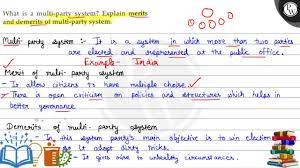 What is a multi-party system? Explain merits
and demerits of multi-party system.
Multi-party system :- It is a system in which more than two parties
are elected and represented at the public office.
Example - India
Merit of multi-party system
It allows citizens to have multiple choice.
There is open criticism on policies and structures which helps in
better governance
Demerits of multi-party system
In this system party's main objective is to win election
it adopt dirty tricks.
It gives rise to unhealthy circumstances.